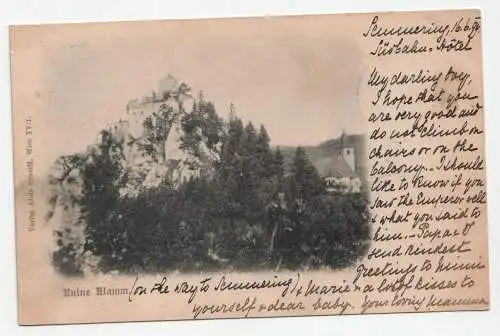 Semmering, 16.6.98
Südbahn-Hotel
My darling boy,
I hope that you
are very good and
do not climb on
chairs or on the
balcony. - I should
like to know if you
saw the Emperor well
& what you said to
him. - Papa & I
send kindest
greetings to Minnie
& Marie & a lot of kisses to
yourself & dear baby. Your loving Mamma
Verlag Alois Schnerll, Wien XV/1.
Ruine Klamm. (on the way to Semmering)